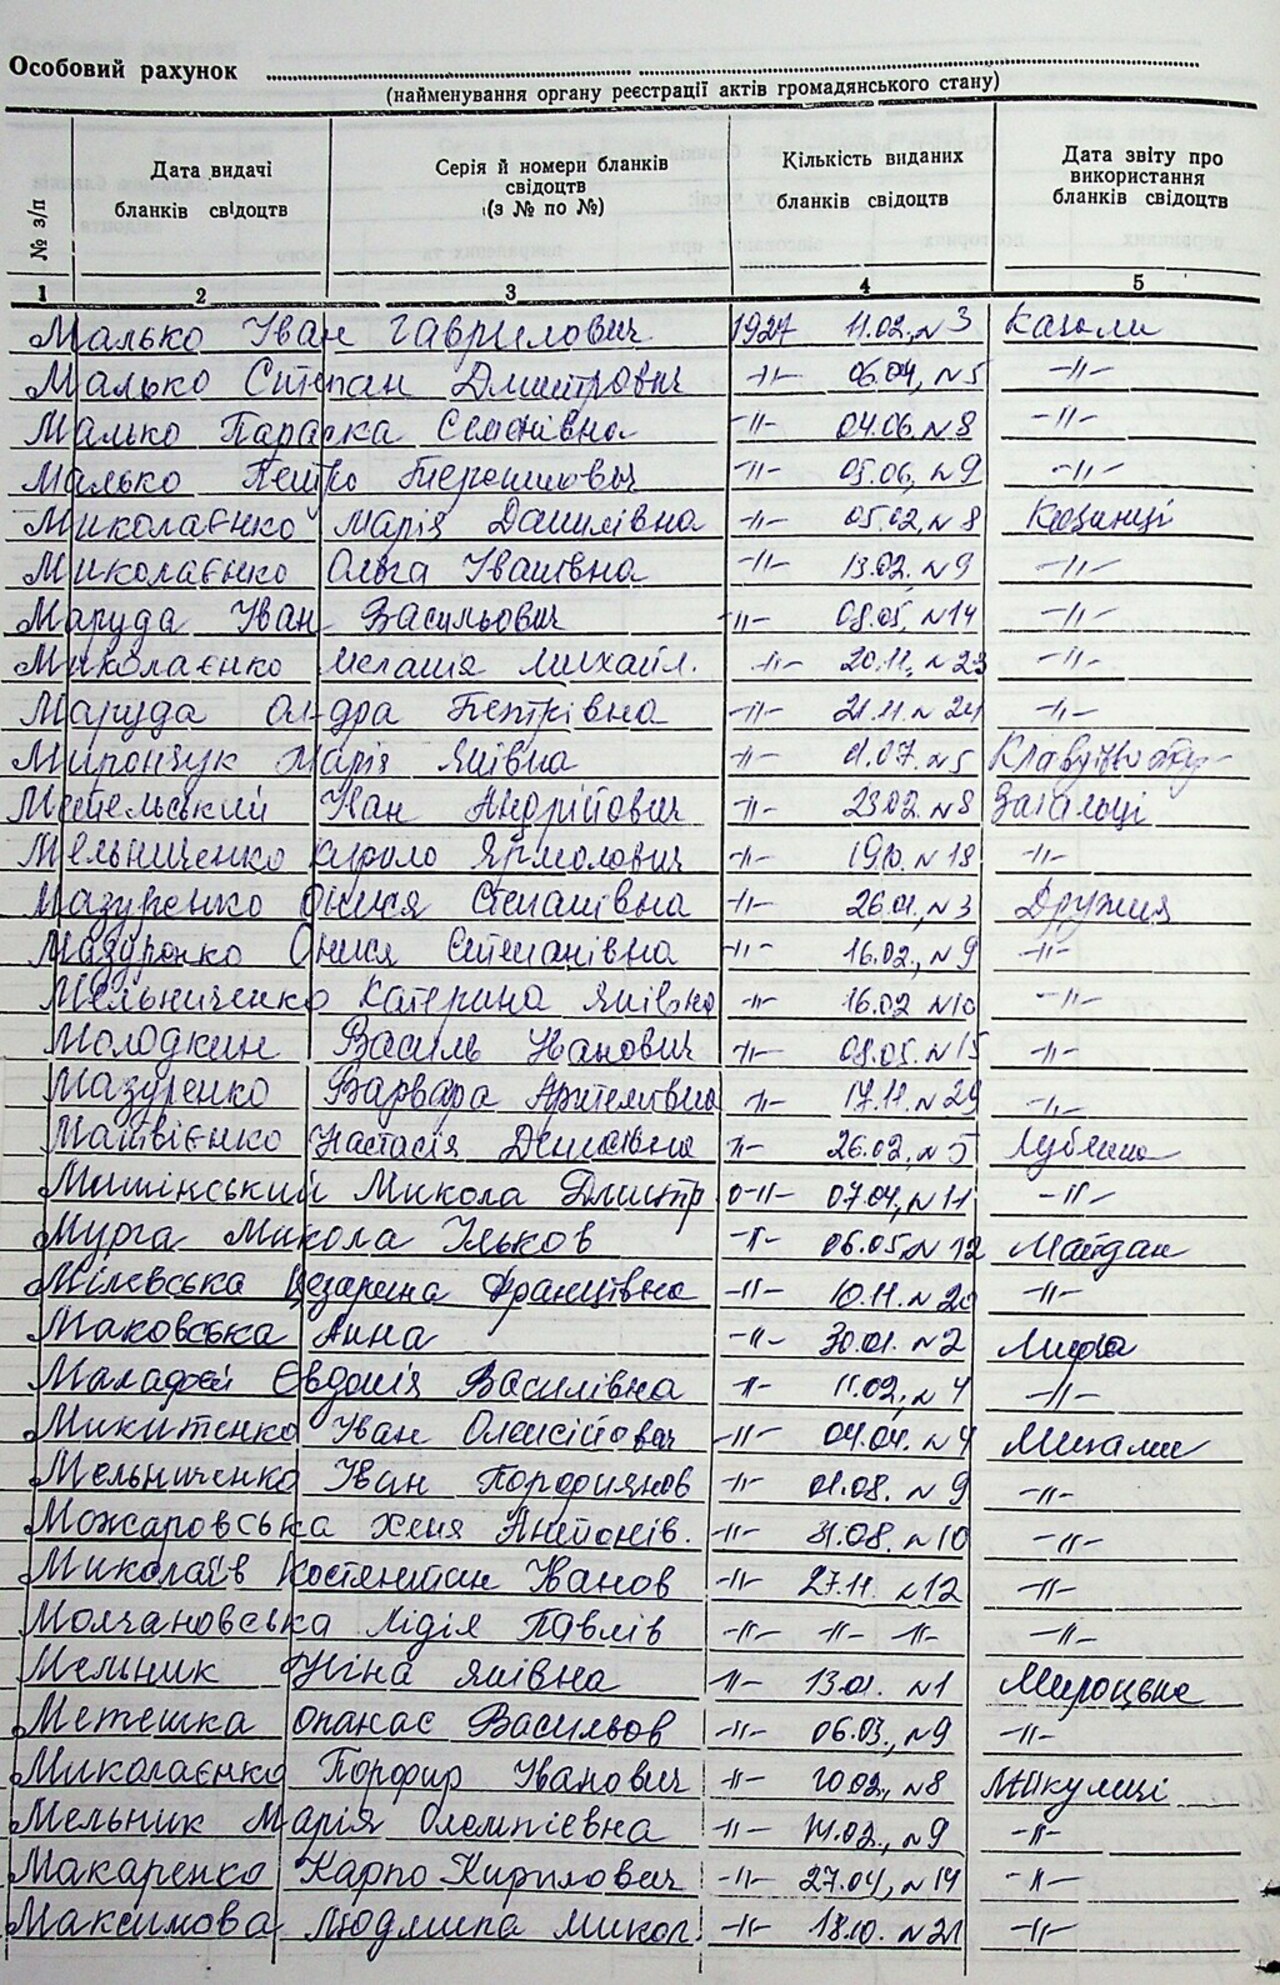 Особовий рахунок
(найменування органу реєстрації актів громадянського стану)
№ з/п
Дата видачі бланків свідоцтв
Серія й номери бланків свідоцтв (з № по №)
Кількість виданих бланків свідоцтв
Дата звіту про використання бланків свідоцтв
1 2 3 4 5
Малько Іван Гаврилович 1927 11.02, №3
Малько Степан Дмитрович -॥- 06.04, №5 -॥-
Малько Параска Семенівна -॥- 04.06 №8 -॥-
Малько Петро -॥- 05.06, №9 -॥-
Миколаєнко Марія Данилівна -॥- 05.02, №8
Миколаєнко Ольга Іванівна -॥- 13.02. №9 -॥-
Маруда Іван Васильович -॥- 08.05, №14 -॥-
Миколаєнко Меланія Михайл. -॥- 20.11, №23 -॥-
Маруда Ол-дра Петрівна -॥- 21.11. №24 -॥-
Мирончук Марія Яківна -॥- 01.07. №5
Іван Андрійович -॥- 23.02. №8 Загальці
Мельниченко Кирило Ярмолович -॥- 19.10. №18 -॥-
Мазуренко Онися Степанівна -॥- 26.01, №3 Дружня
Мазуренко Онися Степанівна -॥- 16.02., №9 -॥-
Мельниченко Катерина Яківна -॥- 16.02 №10 -॥-
Молодкин Василь Іванович -॥- 08.05. №15 -॥-
Мазуренко Варвара Артемівна -॥- 17.11. -॥-
Матвієнко Настасія Денисівна -॥- 26.02, №5 Луб'янка
Микола Дмитр -॥- 07.04, №11 -॥-
Мурга Микола Ільков -॥- 06.05, №12 Майдан
Мілевська Цезарина Францівна -॥- 10.11. №20 -॥-
Маковська Анна -॥- 30.01. №2
Маладфей Євдокія Василівна -॥- 11.02, №4 -॥-
Микитенко Іван Олексійович -॥- 04.04. №4
Мельниченко Іван -॥- 01.08. №9 -॥-
Можаровська Хеня Антонів. -॥- 31.08. №10 -॥-
Миколаїв Костянтин Іванов -॥- 27.11. №12 -॥-
Молчановська Лідія Павлів -॥- -॥- -॥- -॥-
Мельник Ніна Яківна -॥- 13.01. №1 Мироцьке
Метешка Опанас Васильов -॥- 06.03., №9 -॥-
Миколаєнко Порфир Іванович -॥- 10.02., №8 Микуличі
Мельник Марія Олемпієвна -॥- 14.02., №9 -॥-
Макаренко Карпо Кирилович -॥- 27.04, №14 -॥-
Максимова Людмила Микол. -॥- 18.10. №21 -॥-